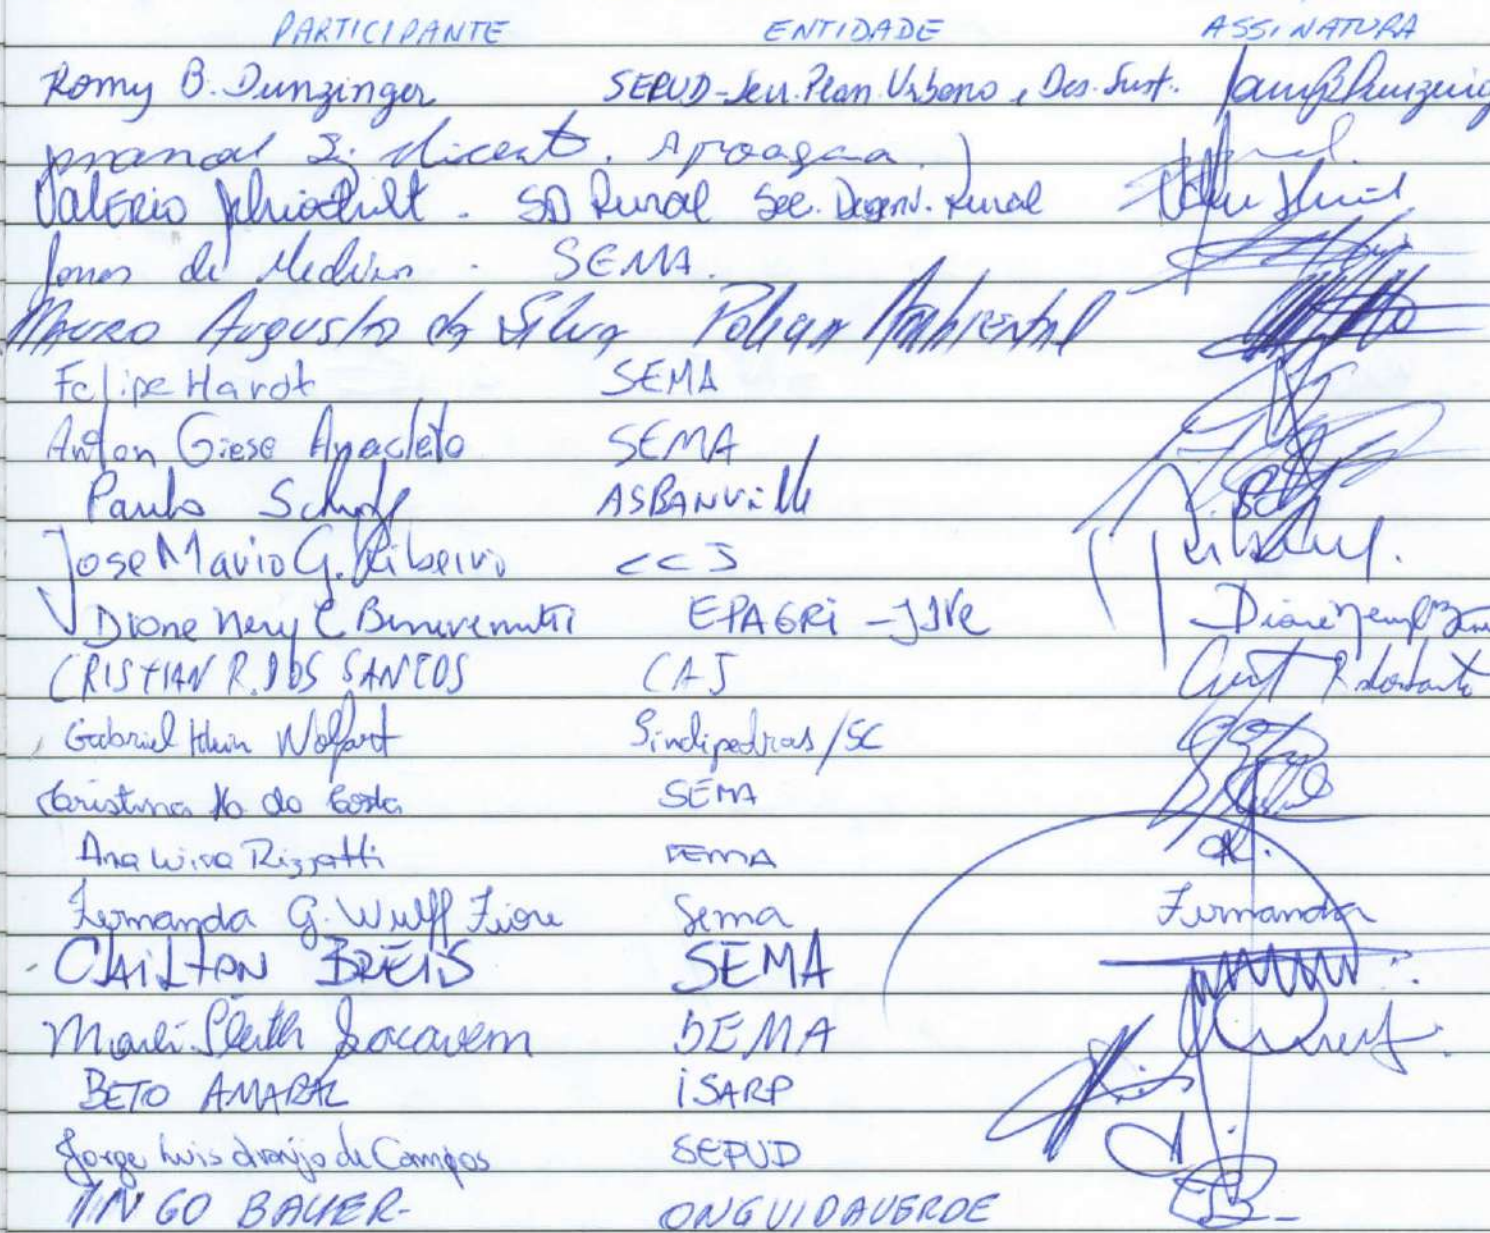 PARTICIPANTE ENTIDADE ASSINATURA
Romy B. Dunzinger SEPUD - Secr. Plan. Urbano e Des. Sust.
Valério SD Rural Sec. Desenv. Rural
Jonas de Medeiros - SEMA.
Mauro Augusto da Silva Polícia Ambiental
Felipe Hardt SEMA
Anton Giese Anacleto SEMA
Paulo ASBANVille
Jose Mario G. Ribeiro CCJ
Dione Nery C Benevenutti EPAGRI - JJVe
CRISTIAN R. DOS SANTOS CAJ
Gabriel Klein Wolfart Sindipedras/SC
Cristina da Costa SEMA
Ana Rizzatti SEMA
Fernanda G. Wulff Fiore Sema Fernanda
CLAILTON BREIS SEMA
SEMA
BETO AMARAL iSARP
Jorge Luis Araújo de Campos SEPUD
INGO BAUER - ONGVIDAVERDE